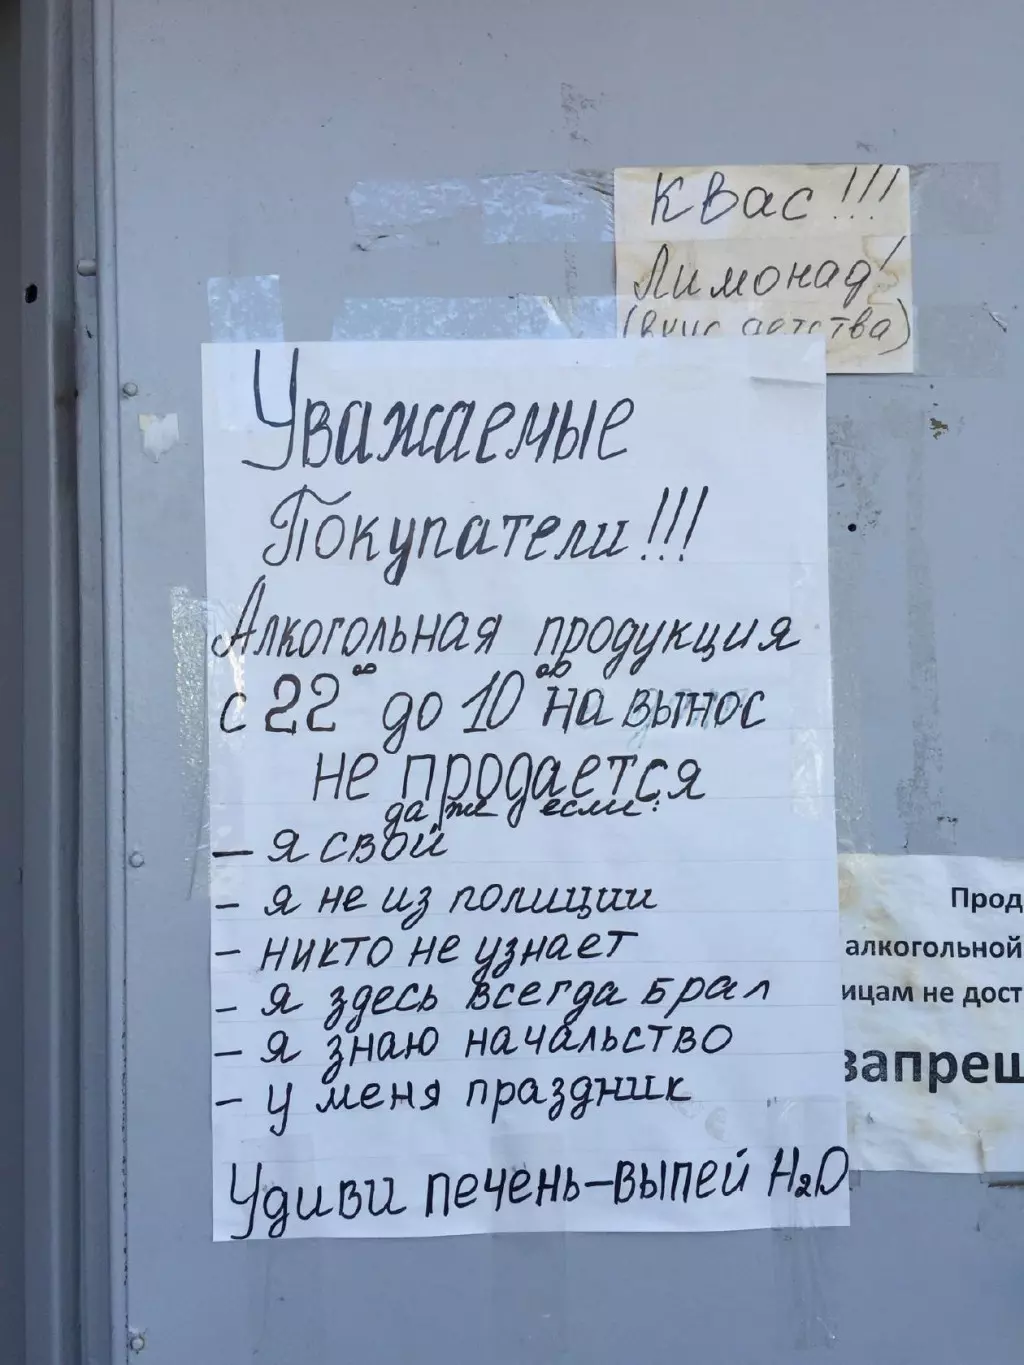 Квас!!!
Лимонад!
(вкус детства)
Уважаемые
Покупатели!!!
Алкогольная продукция
с 22⁰⁰ до 10⁰⁰ на вынос
не продается
даже если:
– я свой
– я не из полиции
– никто не узнает
– я здесь всегда брал
– я знаю начальство
– у меня праздник
Удиви печень–выпей H₂O
Прод
алкогольной
ицам не дост
запрещ